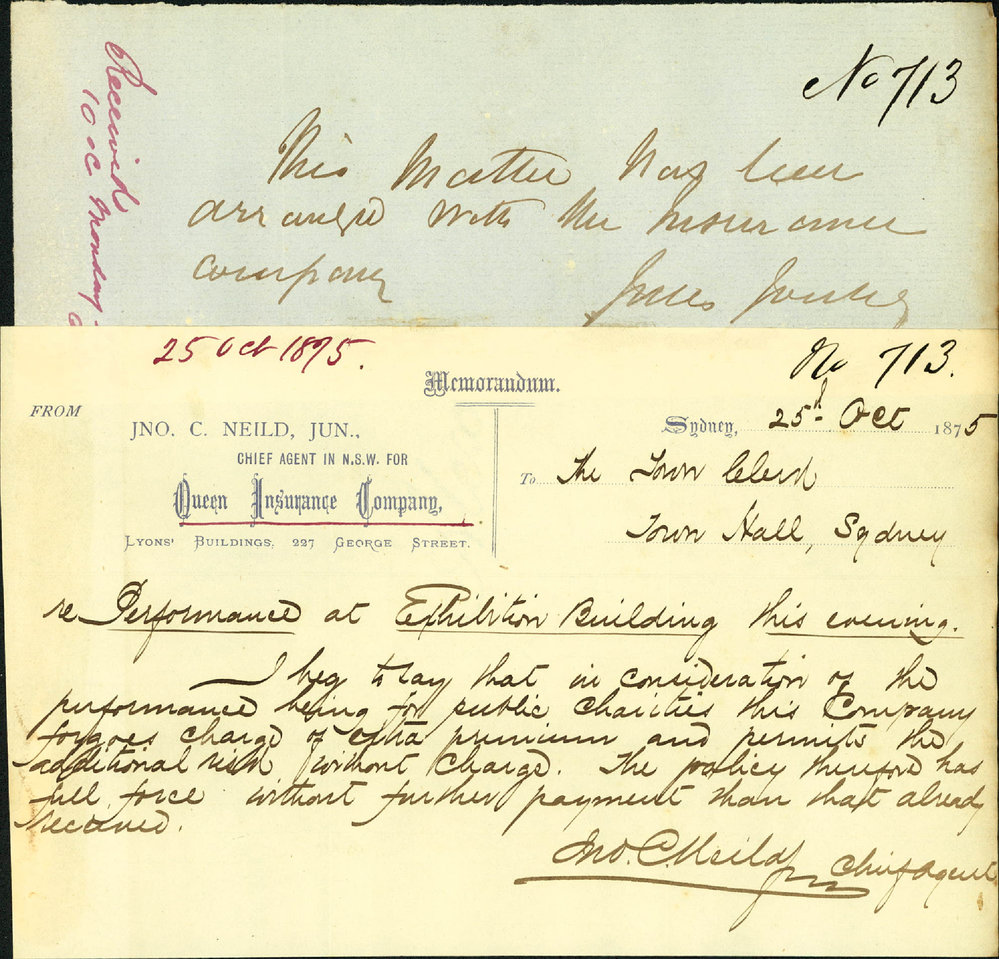 No 713
Received
10 oc Monday
This Matter has been
arranged with the Insurance
company
Jules Joubert
25 Oct 1875.
No 713.
Memorandum.
FROM
JNO. C. NEILD, JUN.,
CHIEF AGENT IN N.S.W. FOR
Queen Insurance Company,
LYONS' BUILDINGS, 227 GEORGE STREET.
Sydney, 25d Oct 1875
To The Town Clerk
Town Hall, Sydney
re Performance at Exhibition Building this evening.
I beg to say that in consideration of the
performance being for public charities this Company
forgoes charge of extra premium and permits the
additional risk without charge. The policy therefore has
full force without further payment than that already
received.
Jno. C. Neild Jun Chief Agent